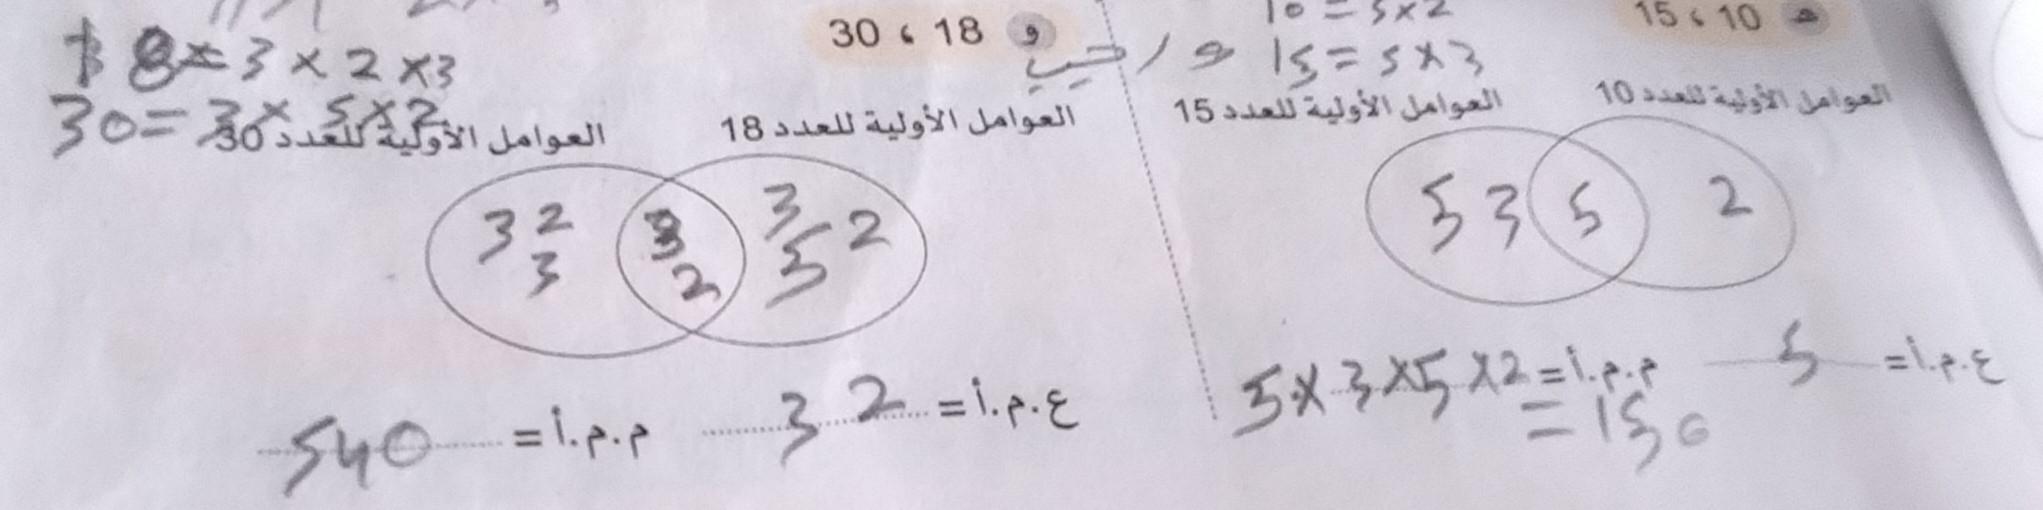 هـ 10 ، 15
10 = 5×2
15 = 5×3
العوامل الأولية للعدد 10
العوامل الأولية للعدد 15
5 3
5
2
ع.م.أ = 5
م.م.أ = 5×3×5×2
= 150
و 18 ، 30
18 = 3×2×3
30 = 3×5×2
العوامل الأولية للعدد 18
العوامل الأولية للعدد 30
3 2
3
3
2
3
5 2
ع.م.أ = 3 2
م.م.أ = 540